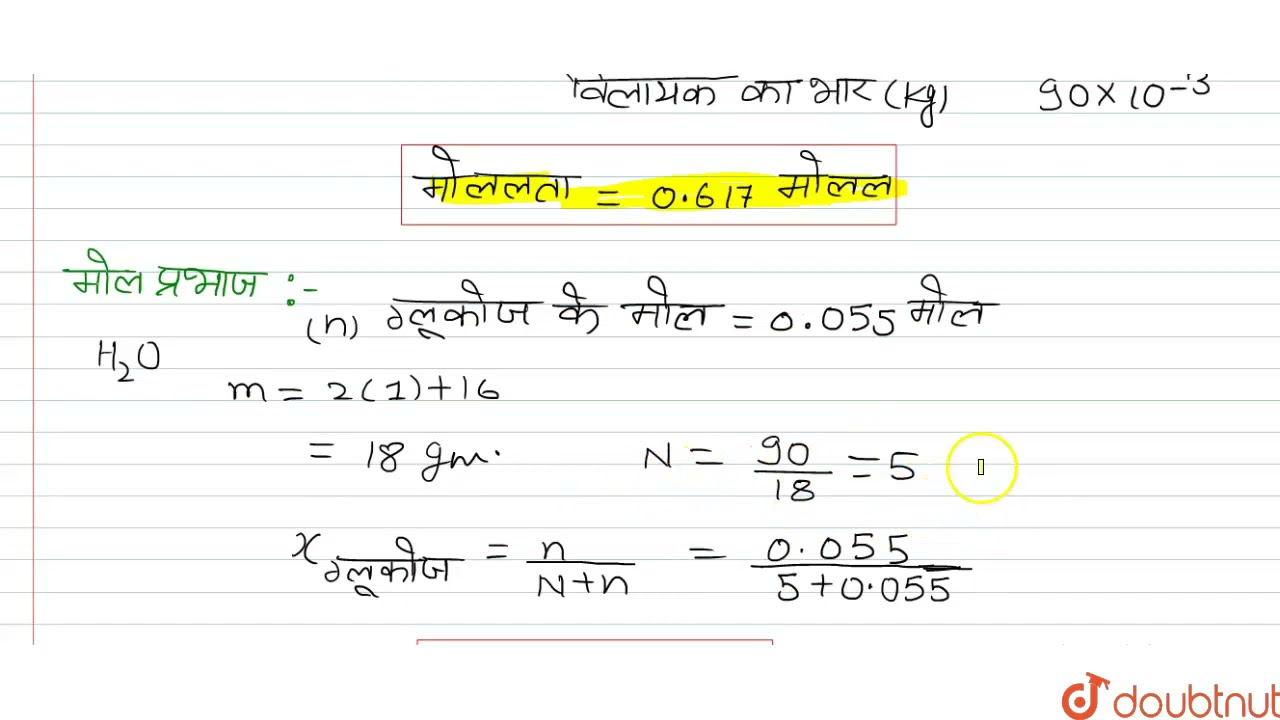 विलायक का भार (Kg) 90×10⁻³
मोललता = 0.617 मोलल
मोल प्रभाज :-
(n) ग्लूकोज के मोल = 0.055 मोल
H₂O
m = 2(1)+16
= 18 gm. N = 90/18 = 5
x ग्लूकोज = n/N+n = 0.055/5+0.055
doubtnut